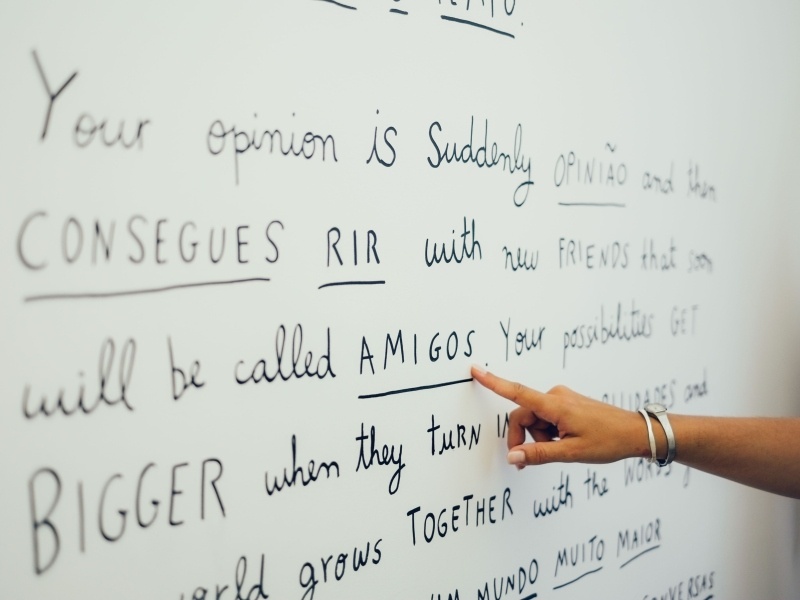 Your opinion is Suddenly OPINIÃO and then
CONSEGUES RIR with new FRIENDS that soon
will be called AMIGOS. Your possibilities GET
BIGGER when they turn and
grows TOGETHER with the WORDS
MUNDO MUITO MAIOR